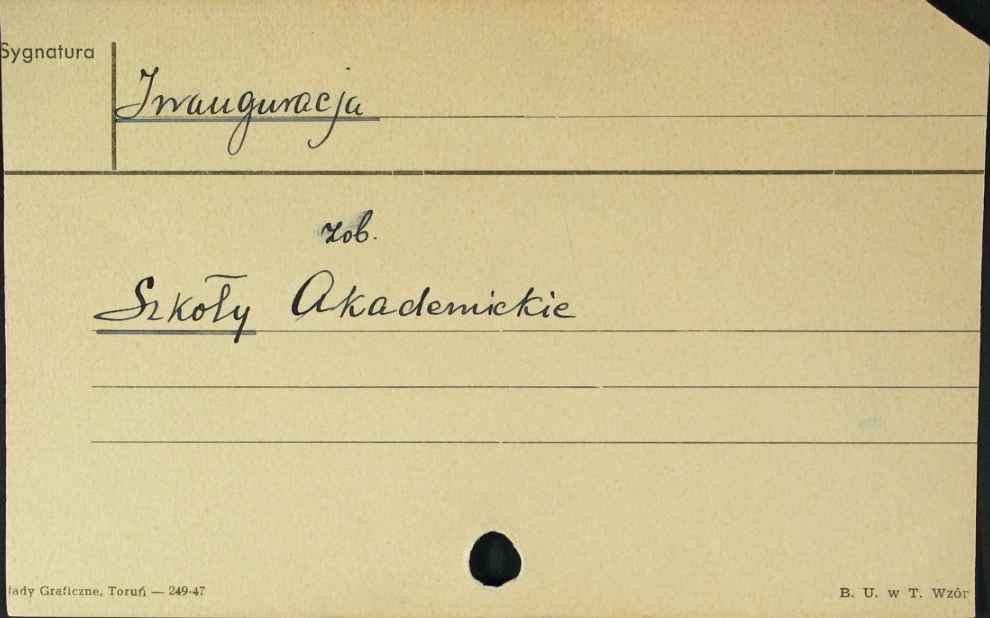 Sygnatura
Inauguracja
zob.
Szkoły Akademickie
łady Graficzne, Toruń — 249-47
B. U. w T. Wzór